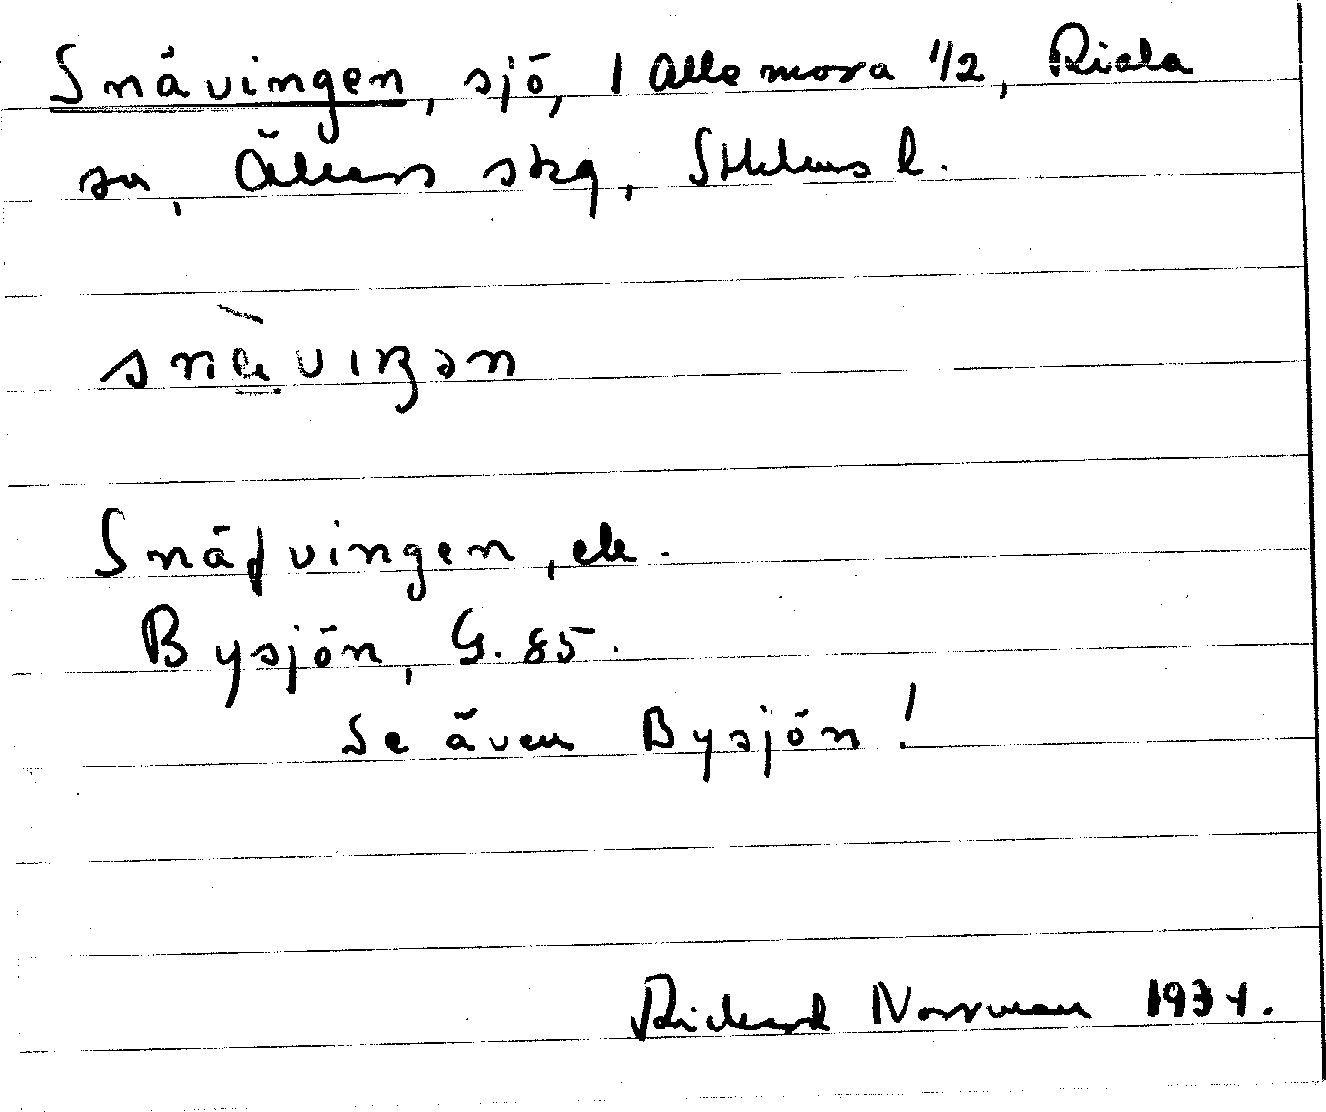 Snåvingen, sjö, 1 Allemora 1/2, Riala
sn, Åkers skg, Sthlms l.
snåvıŋən
Snåfvingen, ek.
Bysjön, G. 85.
Se även Bysjön!
Rickard Norrman 1934.